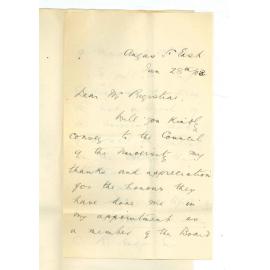 Angas St East
Jan 28th
Dear Mr Registrar,
Will you kindly
convey to the Council
of the University my
thanks and appreciation
for the honour they
have done me in
my appointment as
a member of the Board